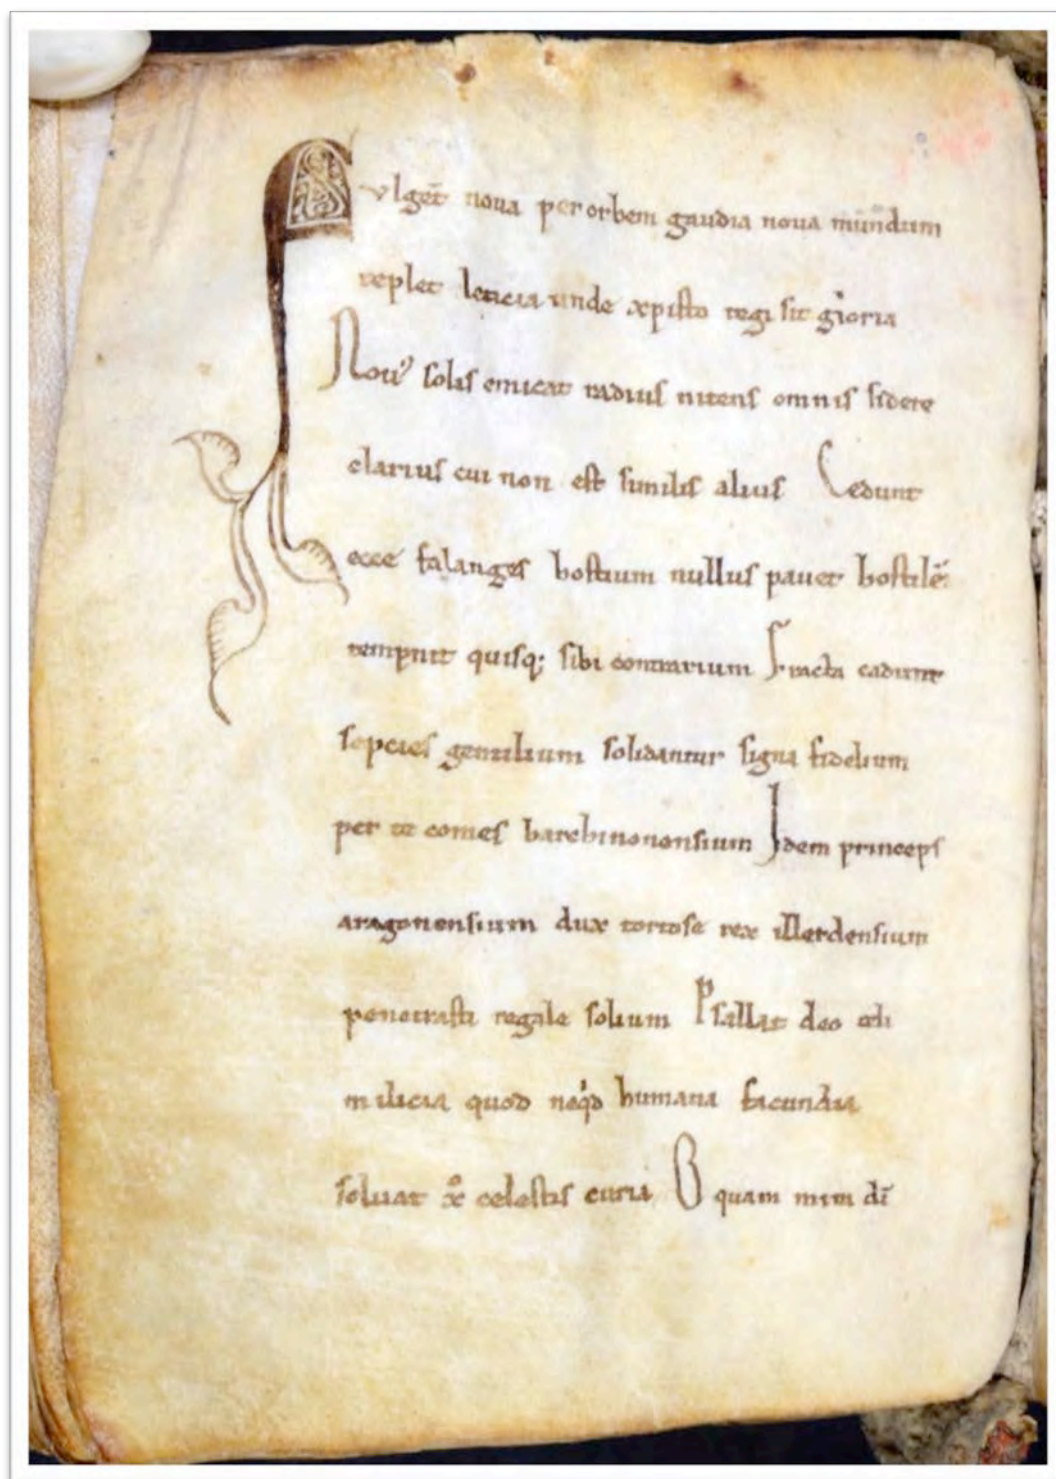 Fulgēt noua per orbem gaudia noua mundum
replet leticia unde xpisto regi sit gloria
Nou⁹ solis emicat radius nitens omnis sidere
clarius cui non est similis alius Cedunt
ecce falanges hostium nullus pauet hostilē
tempnit quisq; sibi contrarium Fracta cadunt
sepcies gentilium solidantur signa fidelium
per te comes barchinonensium Idem princeps
aragonensium dux tortose rex illerdensium
penetrasti regale solium Psallat deo celi
milicia quod humana facundia
soluat celestis curia O quam dī